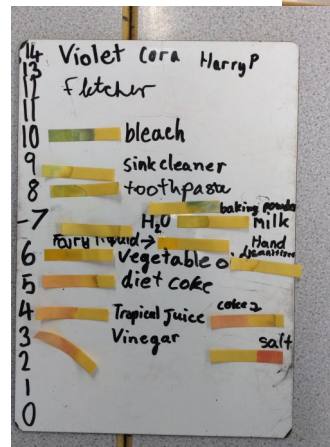 14 Violet Cora Harry P
13
12 Fletcher
11
10 bleach
9 sink cleaner
8 toothpasta
baking powder
-7 H2O Milk
Fairy liquid → Hand
6 vegetable o
5 diet coke
4 Tropical Juice coke 2
3 Vinegar
salt
2
1
0